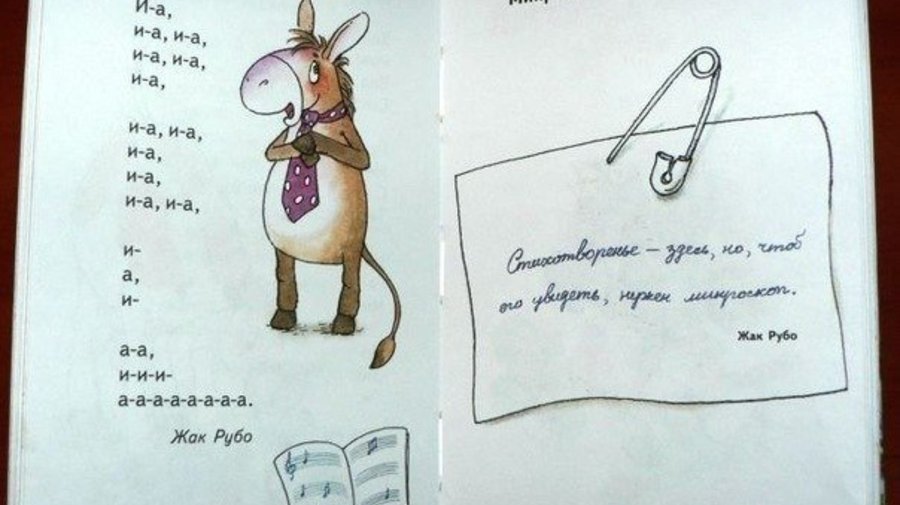 И-а,
и-а, и-а,
и-а, и-а,
и-а,
и-а, и-а,
и-а,
и-а,
и-а, и-а,
и-
а,
и-
а-а,
и-и-и-
а-а-а-а-а-а-а-а.
Жак Рубо
Стихотворенье – здесь, но, чтоб
его увидеть, нужен микроскоп.
Жак Рубо